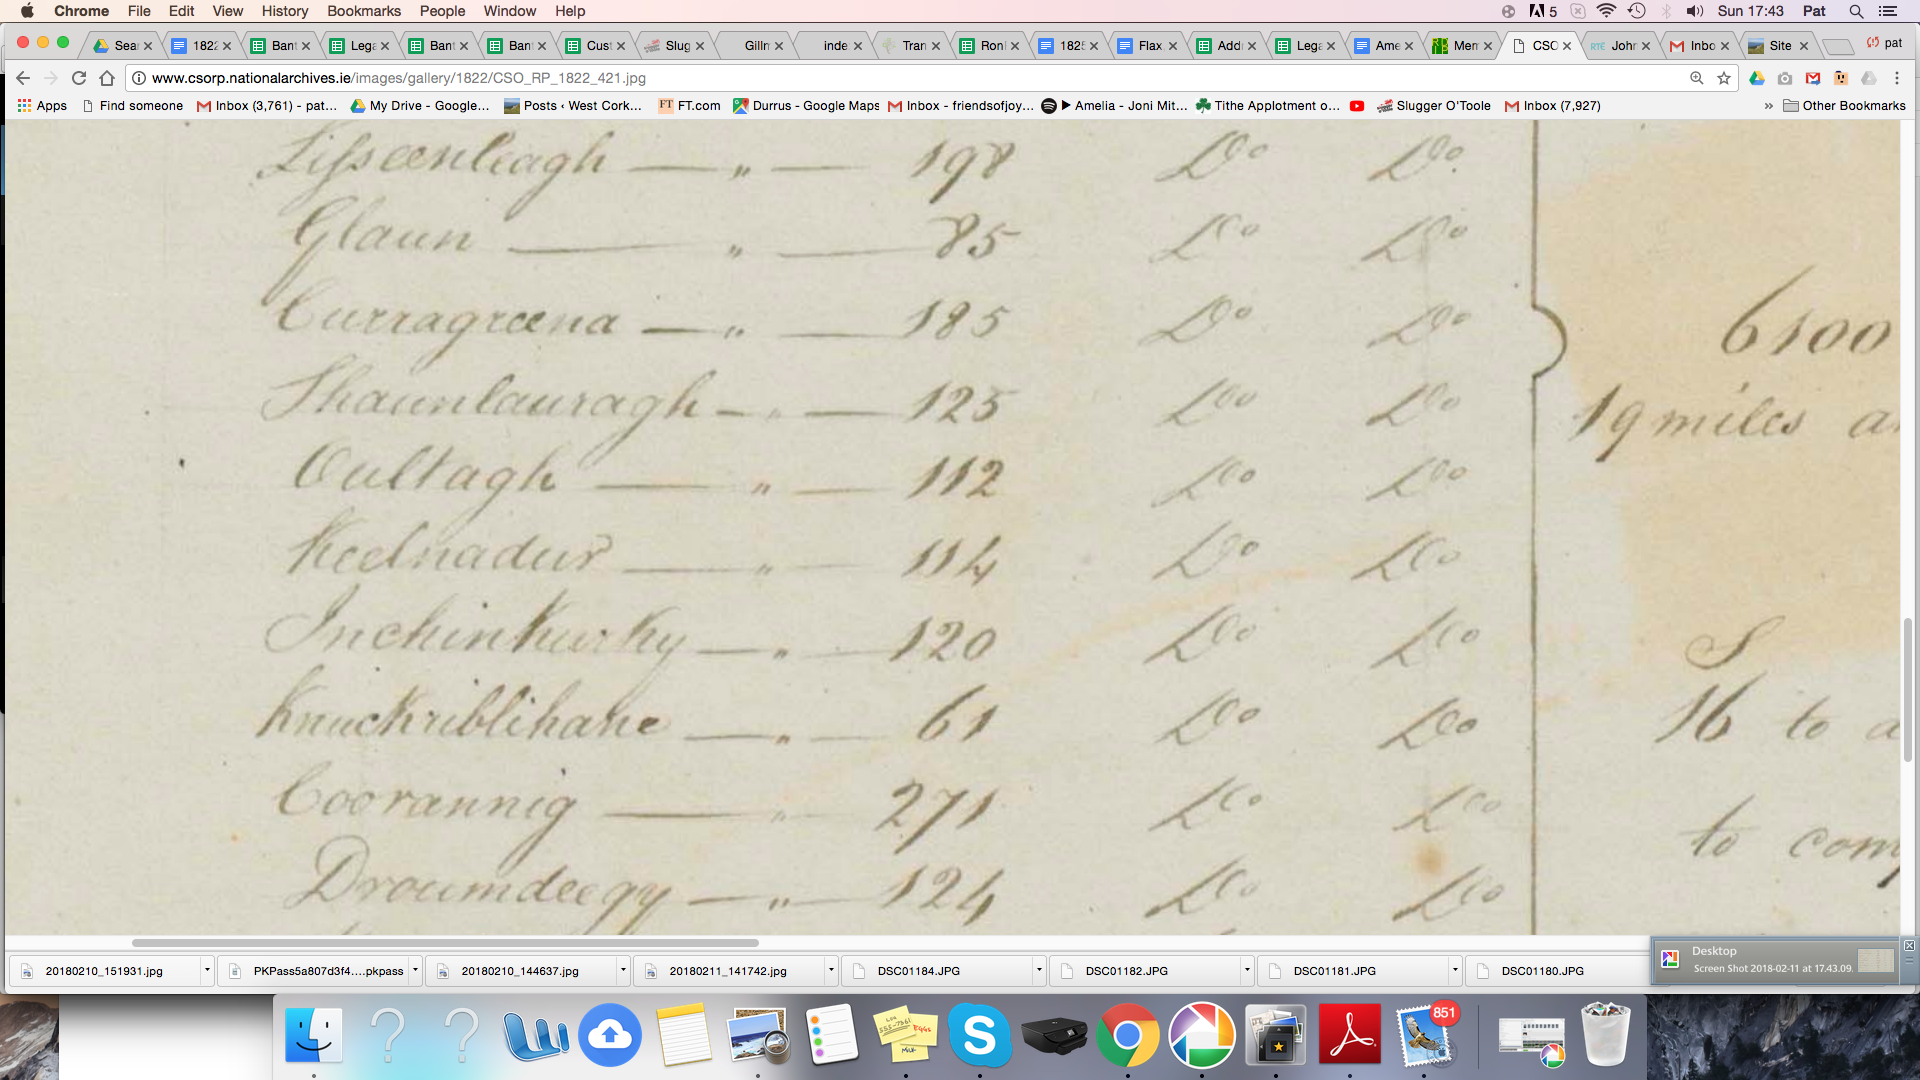 Chrome File Edit View History Bookmarks People Window Help 5 Sun 17:43 Pat
Sear 1822 Bant Lega Bant Bant Cust Slug Gillm inde Tran Ronl 1825 Flax Addr Lega Ame Mem CSO John Inbo Site pat
www.csorp.nationalarchives.ie/images/gallery/1822/CSO_RP_1822_421.jpg
Apps Find someone Inbox (3,761) - pat... My Drive - Google... Posts ‹ West Cork... FT FT.com Durrus - Google Maps Inbox - friendsofjoy... Amelia - Joni Mit... Tithe Applotment o... Slugger O'Toole Inbox (7,927) » Other Bookmarks
Lisseenleagh — " — 198 Do Do.
Glaun — " — 85 Do Do
Curragreena — " — 185 Do Do
6100
Shaunlauragh — " — 125 Do Do
19 miles a
Oultagh — " — 112 Do Do
Keelnadur — " — 114 Do Do
Inchinkurky — " — 120 Do Do
S
Knuckriblihane — " — 61 Do Do
16 to a
Coorannig — " — 271 Do Do
to com
Droumdeegy — " — 124 Do Do
Desktop
Screen Shot 2018-02-11 at 17.43.09.
20180210_151931.jpg PKPass5a807d3f4....pkpass 20180210_144637.jpg 20180211_141742.jpg DSC01184.JPG DSC01182.JPG DSC01181.JPG DSC01180.JPG
851